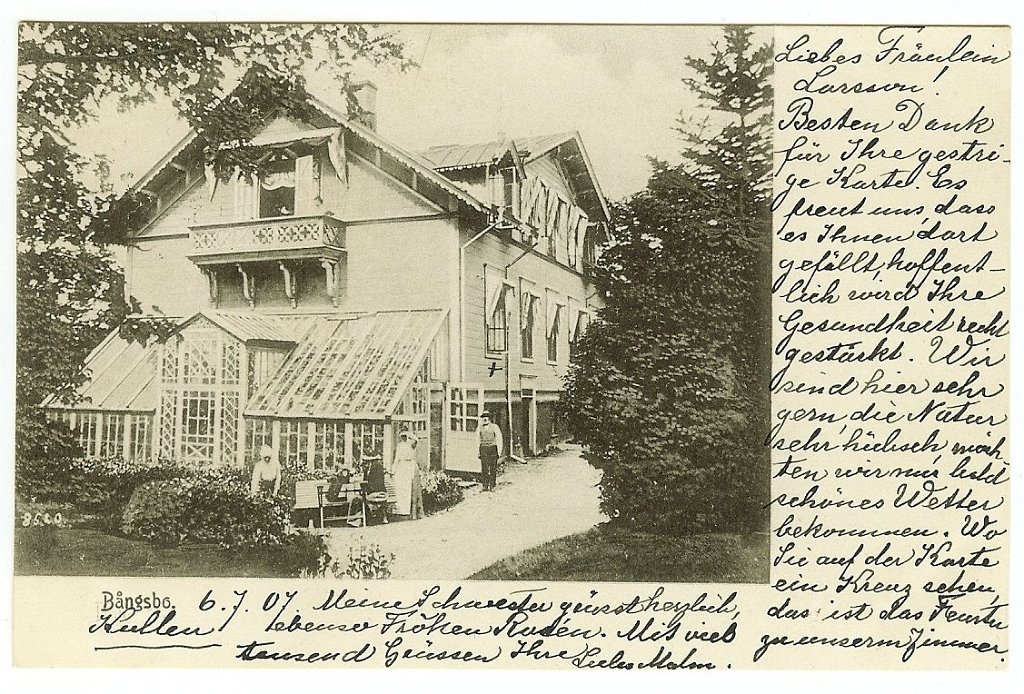 Liebes Fräulein
Larsson!
Besten Dank
für Ihre gestri-
ge Karte. Es
freut uns, dass
es Ihnen dort
gefällt, hoffent-
lich wird Ihre
Gesundheit recht
gestärkt. Wir
sind hier sehr
gern, die Natur
sehr hübsch, möch
ten wir nur bald
schönes Wetter
bekommen. Wo
Sie auf der Karte
ein Kreuz sehen,
das ist das Fenster
zu unserm Zimmer.
8520.
Bångsbo. 6.7.07. Meine Schwester grüsst herzlich,
Kullen ebenso Fröken Rosén. Mit viel
tausend Grüssen Ihre Malm.